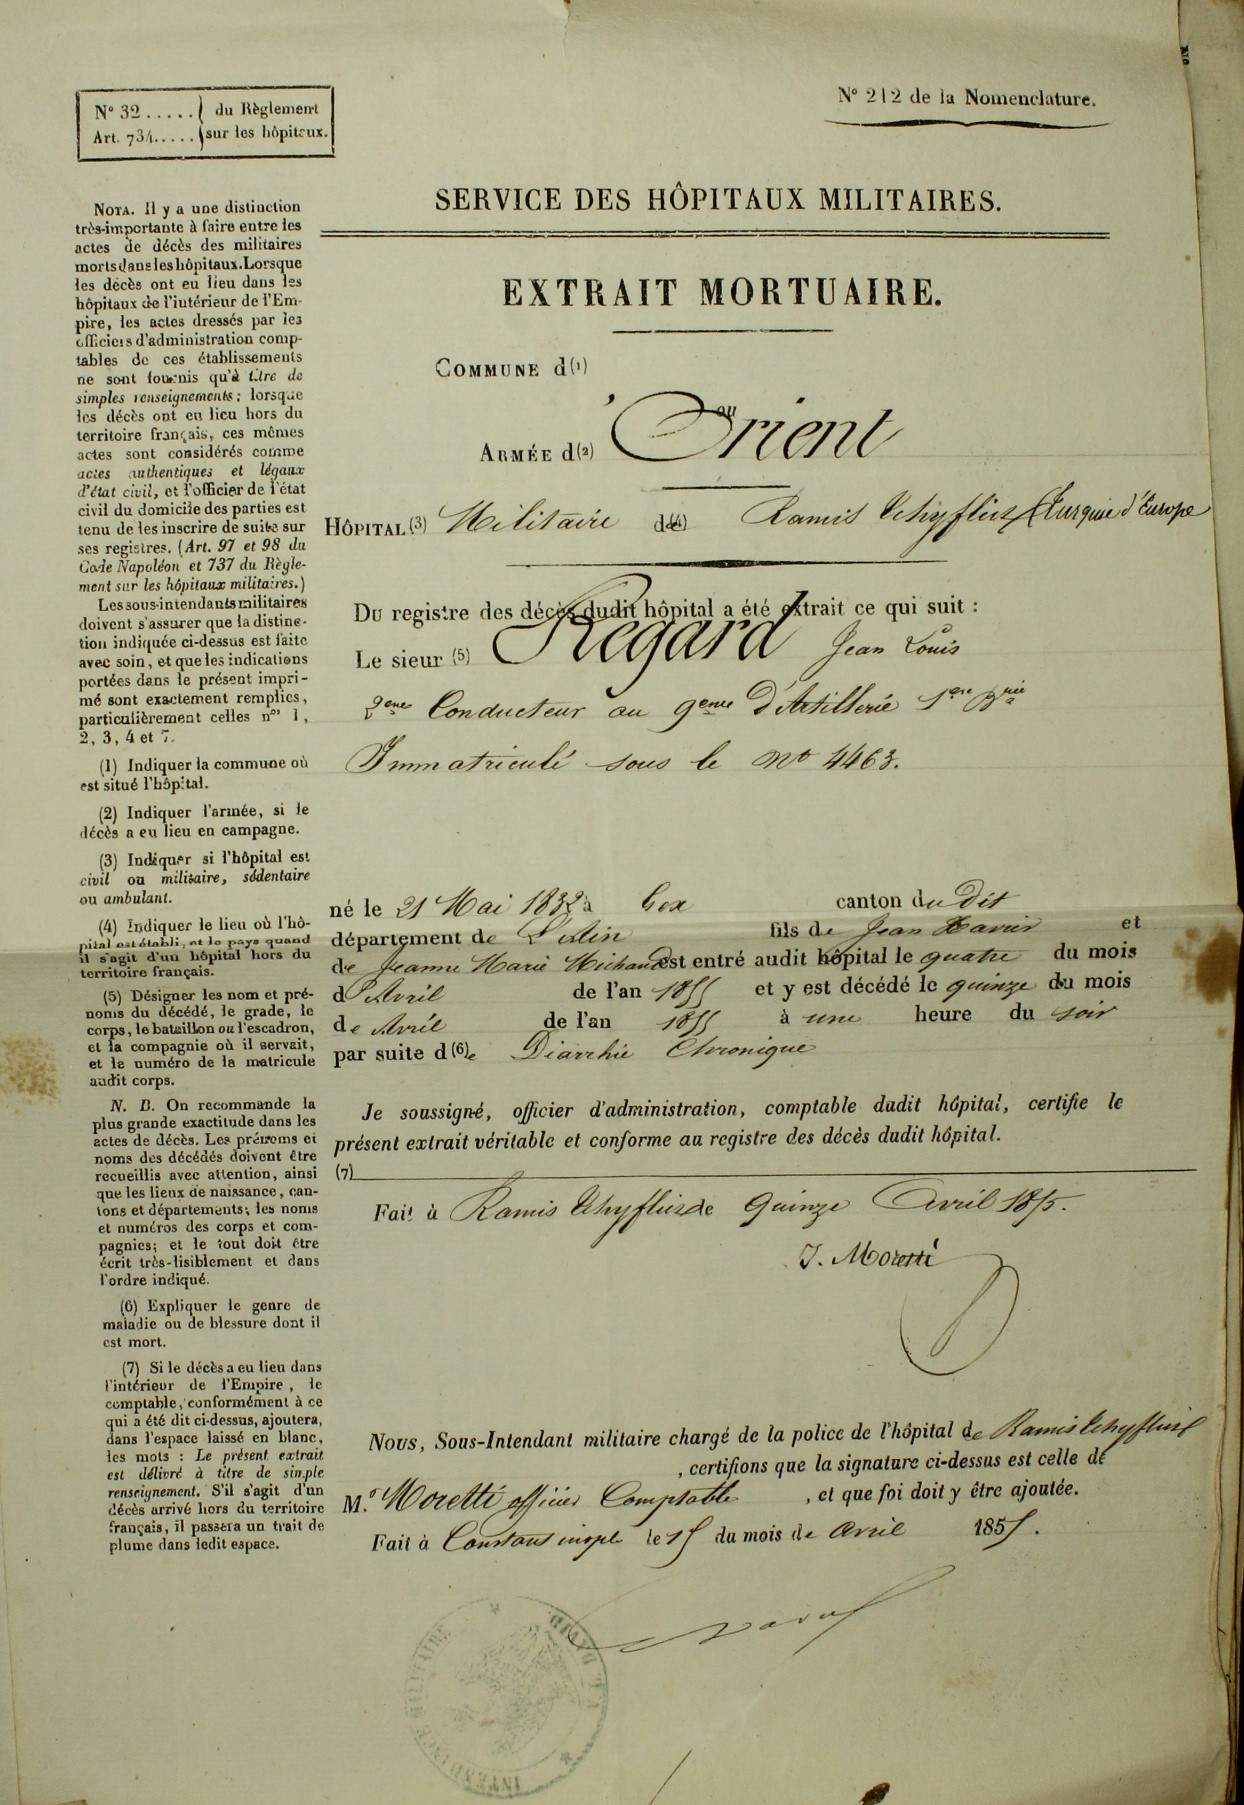 N° 212 de la Nomenclature.
N° 32 ..... du Règlement
Art. 734..... sur les hôpitaux.
SERVICE DES HÔPITAUX MILITAIRES.
EXTRAIT MORTUAIRE.
COMMUNE d(1)
ou
ARMÉE d(2) 'Orient
HÔPITAL (3) Militaire de (4) Ramis Tchyflick (Turquie d'Europe
Du registre des décès dudit hôpital a été extrait ce qui suit :
Le sieur (5) Regard Jean Louis
2eme Conducteur au 9eme d'Artillerie 1ere Brie
Immatriculé sous le no 4463.
né le 21 Mai 1832 à Gex canton du Dit
département de L'Ain fils de Jean Xavier et
de Jeanne Marie Michaud est entré audit hôpital le quatre du mois
d'Avril de l'an 1855 et y est décédé le quinze du mois
de Avril de l'an 1855 à une heure du soir
par suite d(6)e Diarrhée Chronique
Je soussigné, officier d'administration, comptable dudit hôpital, certifie le
présent extrait véritable et conforme au registre des décès dudit hôpital.
(7)
Fait à Ramis Tchyflick le Quinze Avril 1855.
J. Moretti
Nous, Sous-Intendant militaire chargé de la police de l'hôpital de Ramis Tchyflick
, certifions que la signature ci-dessus est celle de
M.r Moretti officier Comptable , et que foi doit y être ajoutée.
Fait à Constantinople le 15 du mois de avril 1855.
INTENDANCE MILITAIRE
NOTA. Il y a une distinction
très-importante à faire entre les
actes de décès des militaires
morts dans les hôpitaux. Lorsque
les décès ont eu lieu dans les
hôpitaux de l'intérieur de l'Em-
pire, les actes dressés par les
officiers d'administration comp-
tables de ces établissements
ne sont fournis qu'à titre de
simples renseignements ; lorsque
les décès ont eu lieu hors du
territoire français, ces mêmes
actes sont considérés comme
actes authentiques et légaux
d'état civil, et l'officier de l'état
civil du domicile des parties est
tenu de les inscrire de suite sur
ses registres. (Art. 97 et 98 du
Code Napoléon et 737 du Règle-
ment sur les hôpitaux militaires.)
Les sous-intendants militaires
doivent s'assurer que la distinc-
tion indiquée ci-dessus est faite
avec soin, et que les indications
portées dans le présent impri-
mé sont exactement remplies,
particulièrement celles nos 1,
2, 3, 4 et 7.
(1) Indiquer la commune où
est situé l'hôpital.
(2) Indiquer l'armée, si le
décès a eu lieu en campagne.
(3) Indiquer si l'hôpital est
civil ou militaire, sédentaire
ou ambulant.
(4) Indiquer le lieu où l'hô-
pital est établi, et le pays quand
il s'agit d'un hôpital hors du
territoire français.
(5) Désigner les nom et pré-
noms du décédé, le grade, le
corps, le bataillon ou l'escadron,
et la compagnie où il servait,
et le numéro de la matricule
audit corps.
N. B. On recommande la
plus grande exactitude dans les
actes de décès. Les prénoms et
noms des décédés doivent être
recueillis avec attention, ainsi
que les lieux de naissance, can-
tons et départements; les noms
et numéros des corps et com-
pagnies; et le tout doit être
écrit très-lisiblement et dans
l'ordre indiqué.
(6) Expliquer le genre de
maladie ou de blessure dont il
est mort.
(7) Si le décès a eu lieu dans
l'intérieur de l'Empire, le
comptable, conformément à ce
qui a été dit ci-dessus, ajoutera,
dans l'espace laissé en blanc,
les mots : Le présent extrait
est délivré à titre de simple
renseignement. S'il s'agit d'un
décès arrivé hors du territoire
français, il passera un trait de
plume dans ledit espace.